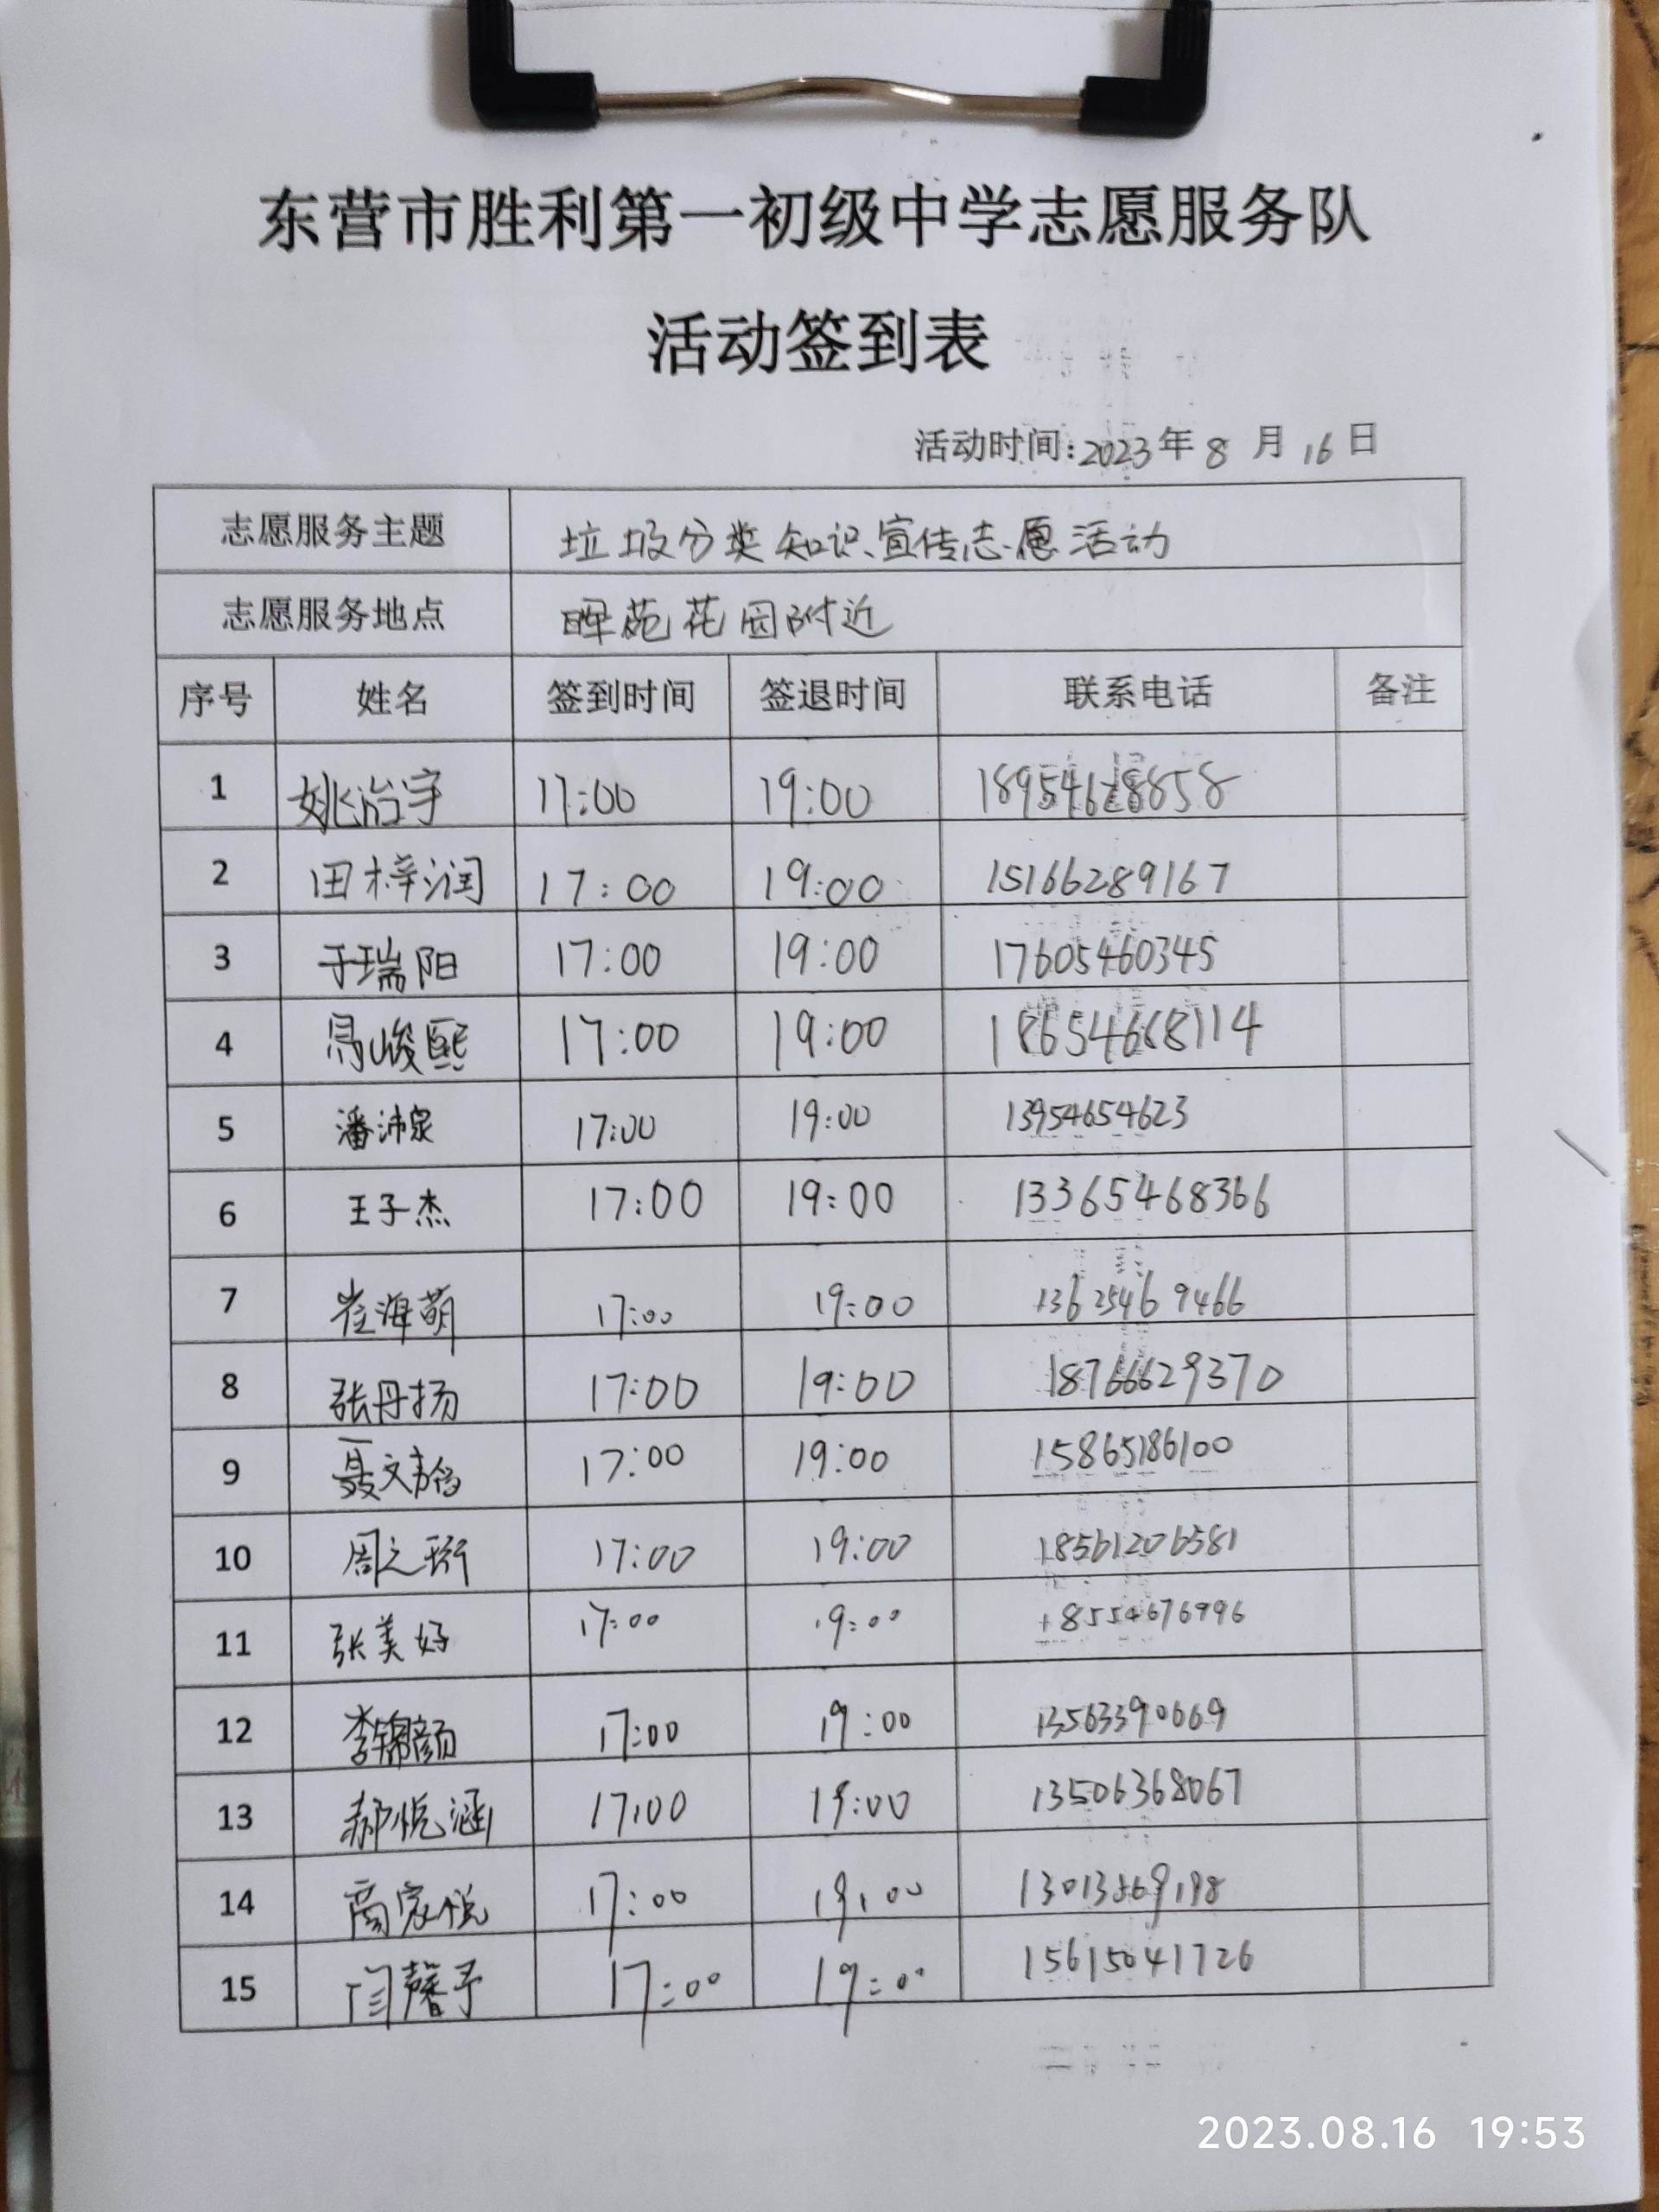 东营市胜利第一初级中学志愿服务队
活动签到表
活动时间:2023年8月16日
志愿服务主题 垃圾分类知识宣传志愿活动
志愿服务地点 晖苑花园附近
序号 姓名 签到时间 签退时间 联系电话 备注
1 姚冶宇 17:00 19:00 18954628858
2 田梓润 17:00 19:00 15166289167
3 于瑞阳 17:00 19:00 17605460345
4 峻熙 17:00 19:00 18654668114
5 潘沛泉 17:00 19:00 13954654623
6 王子杰 17:00 19:00 13365468366
7 崔海萌 17:00 19:00 13625469466
8 张丹扬 17:00 19:00 18766629370
9 聂文韬 17:00 19:00 15865186100
10 周之珩 17:00 19:00 18561206581
11 张美好 17:00 19:00 18554676996
12 李锦颜 17:00 19:00 13563390669
13 郝悦涵 17:00 19:00 13506368067
14 商家悦 17:00 19:00
15 闫馨予 17:00 19:00 15615041726
2023.08.16 19:53